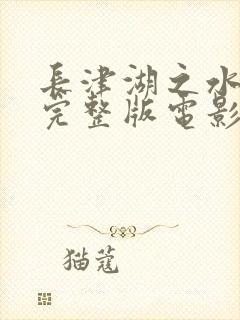 長津湖之水
完整版電影
猫蔻